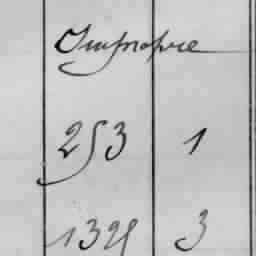 Impropre
253 1
1325 3